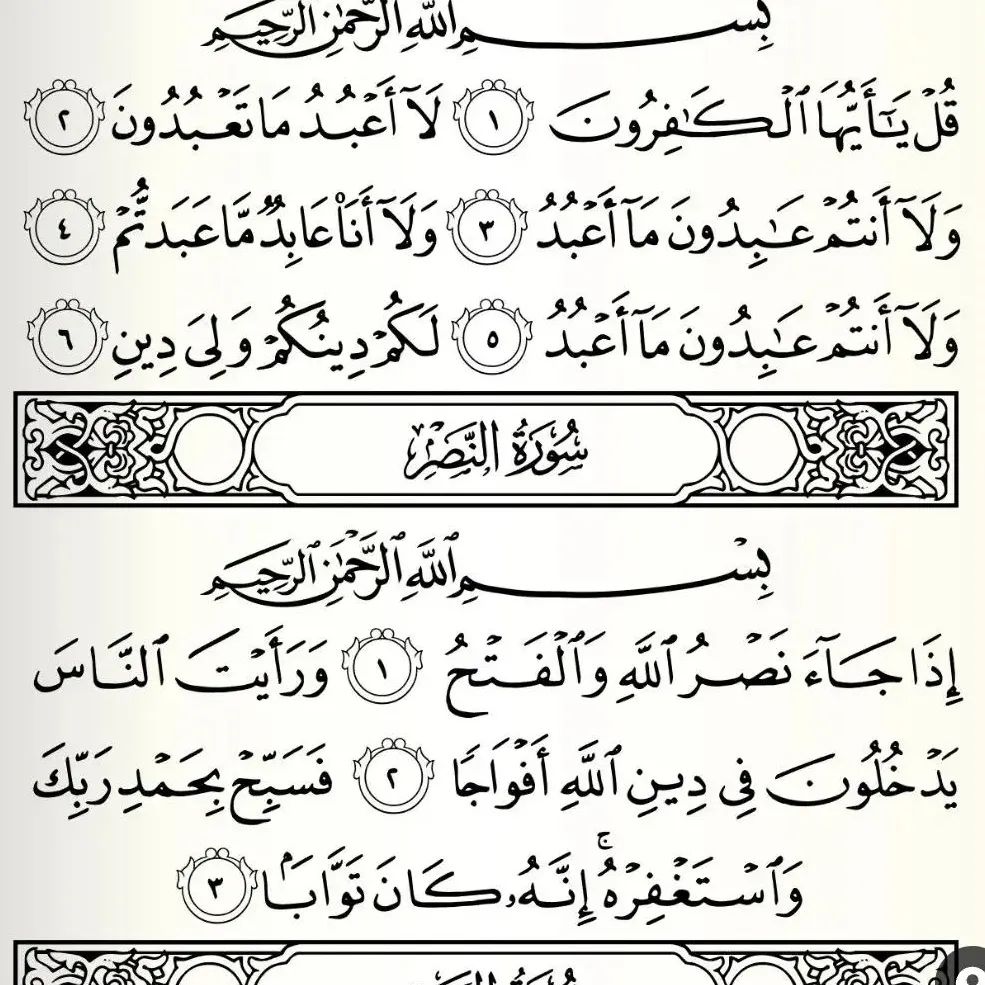 بِسْمِ ٱللَّهِ ٱلرَّحْمَٰنِ ٱلرَّحِيمِ
قُلْ يَٰٓأَيُّهَا ٱلْكَٰفِرُونَ ١ لَآ أَعْبُدُ مَا تَعْبُدُونَ ٢
وَلَآ أَنتُمْ عَٰبِدُونَ مَآ أَعْبُدُ ٣ وَلَآ أَنَا۠ عَابِدٌ مَّا عَبَدتُّمْ ٤
وَلَآ أَنتُمْ عَٰبِدُونَ مَآ أَعْبُدُ ٥ لَكُمْ دِينُكُمْ وَلِىَ دِينِ ٦
سُورَةُ النَّصْرِ
بِسْمِ ٱللَّهِ ٱلرَّحْمَٰنِ ٱلرَّحِيمِ
إِذَا جَآءَ نَصْرُ ٱللَّهِ وَٱلْفَتْحُ ١ وَرَأَيْتَ ٱلنَّاسَ
يَدْخُلُونَ فِى دِينِ ٱللَّهِ أَفْوَاجًا ٢ فَسَبِّحْ بِحَمْدِ رَبِّكَ
وَٱسْتَغْفِرْهُ ۚ إِنَّهُۥ كَانَ تَوَّابًۢا ٣
سُورَةُ